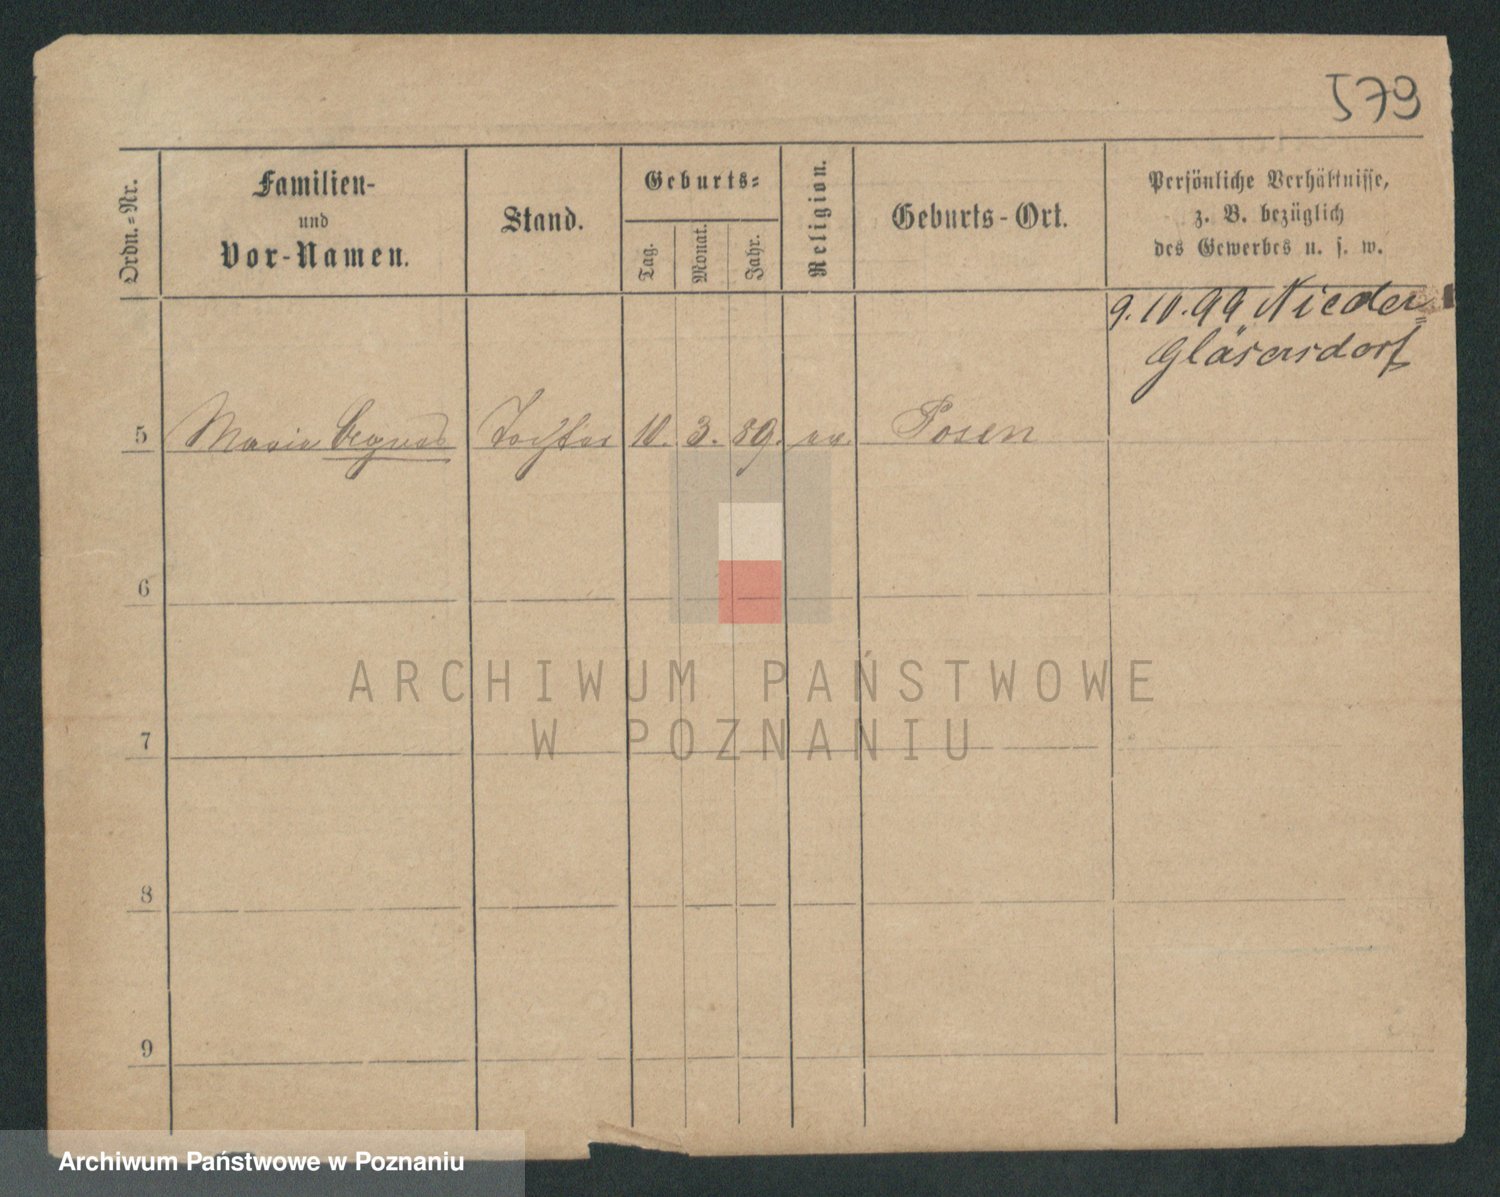 579
Ordn.-Nr.
Familien-
und
Vor-Namen.
Stand.
Geburts-
Tag.
Monat.
Jahr.
Religion.
Geburts-Ort.
Persönliche Verhältnisse,
z. B. bezüglich
des Gewerbes u. s. w.
9.10.99 Nieder-
Gläsersdorf
5 Maria Tochter 10. 3. 89. ev. Posen
6
7
8
9
ARCHIWUM PAŃSTWOWE
W POZNANIU
Archiwum Państwowe w Poznaniu